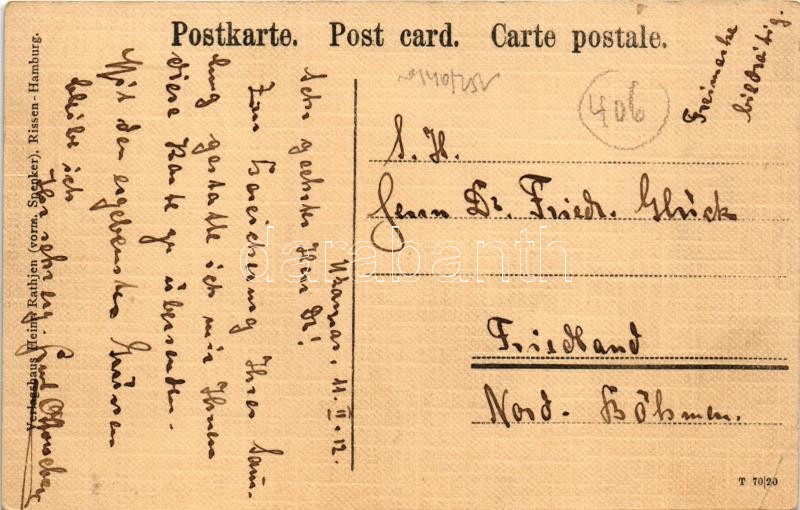 Postkarte. Post card. Carte postale.
Freimarke
bildseitig.
406
S. H.
Herrn Dr. Friedr. Glück
Friedland
Nord-Böhmen.
11. II. 12.
Sehr geehrter Herr Dr!
Zur Bereicherung Ihrer Sam-
lung gestatte ich mir Ihnen
diese Karte zu übersenden.
Mit den ergebensten Grüssen
bleibe ich
Ihr
Verlagshaus Heinr. Rathjen (vorm. Spenker), Rissen-Hamburg.
T 70/20
darabanth